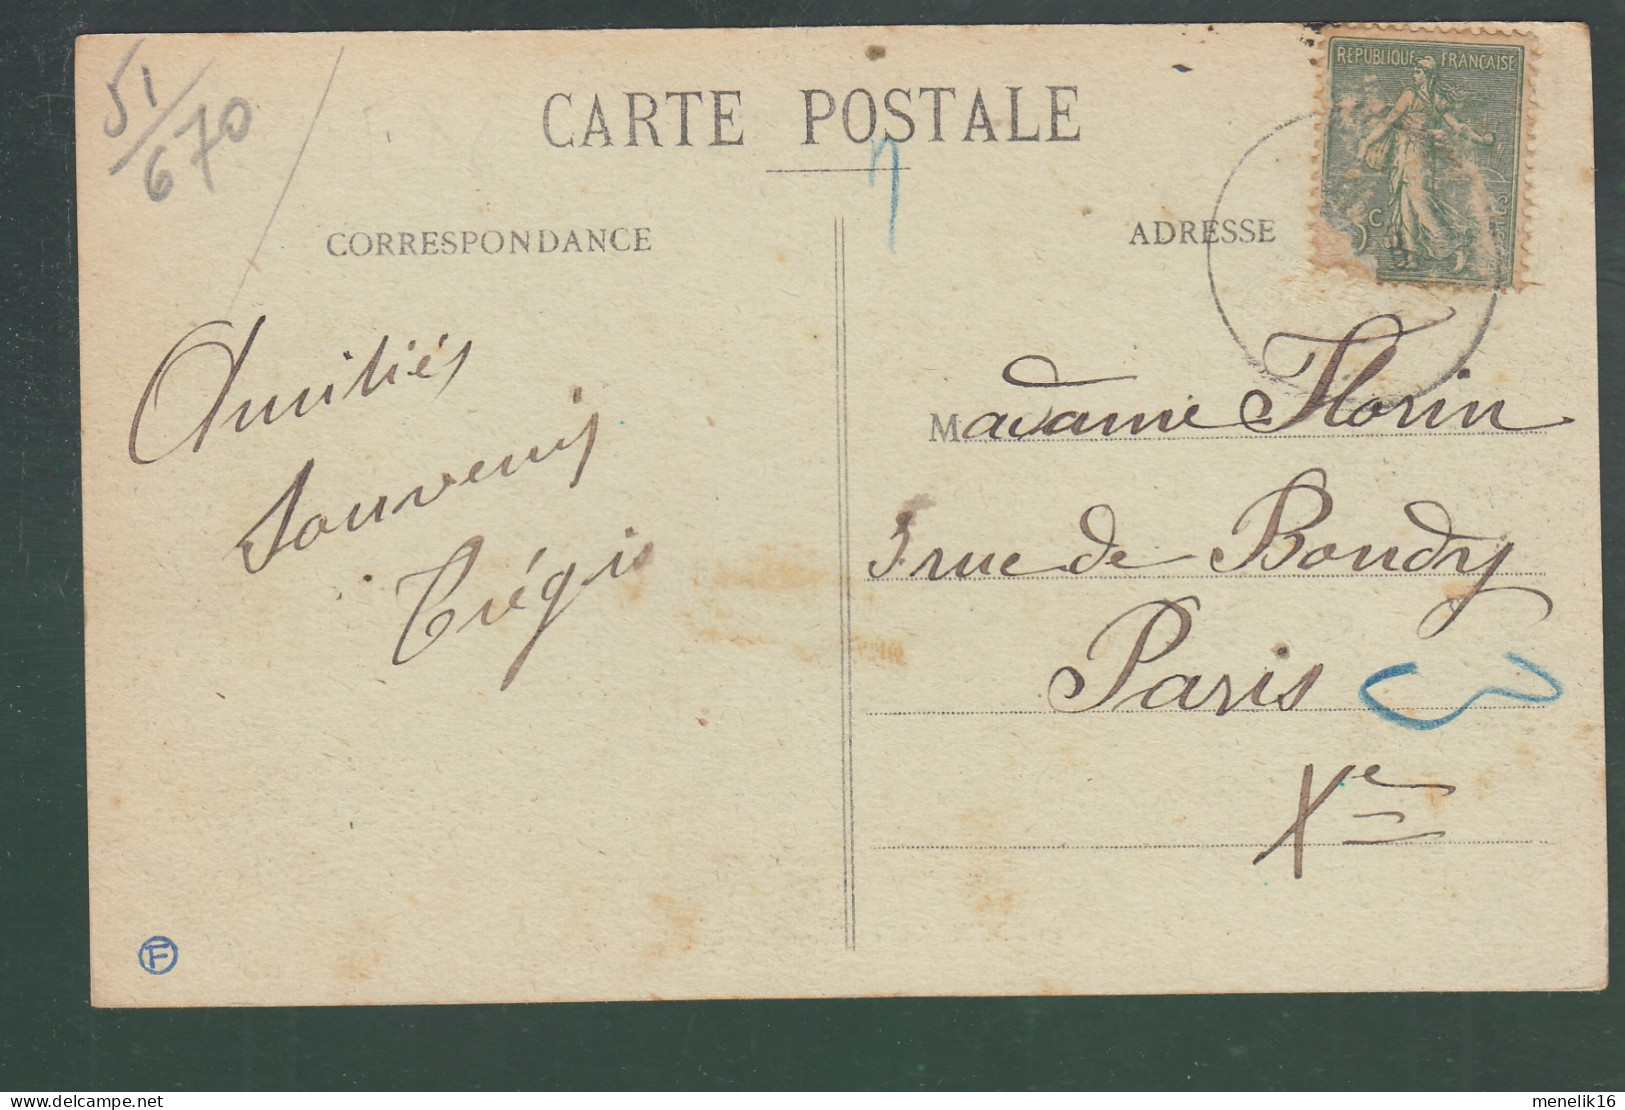 51/670
CARTE POSTALE
CORRESPONDANCE
ADRESSE
REPUBLIQUE FRANCAISE
Amitiés
Souvenirs
Trégis
Madame Florin
3 rue de Bondy
Paris
Xe
F
menelik16